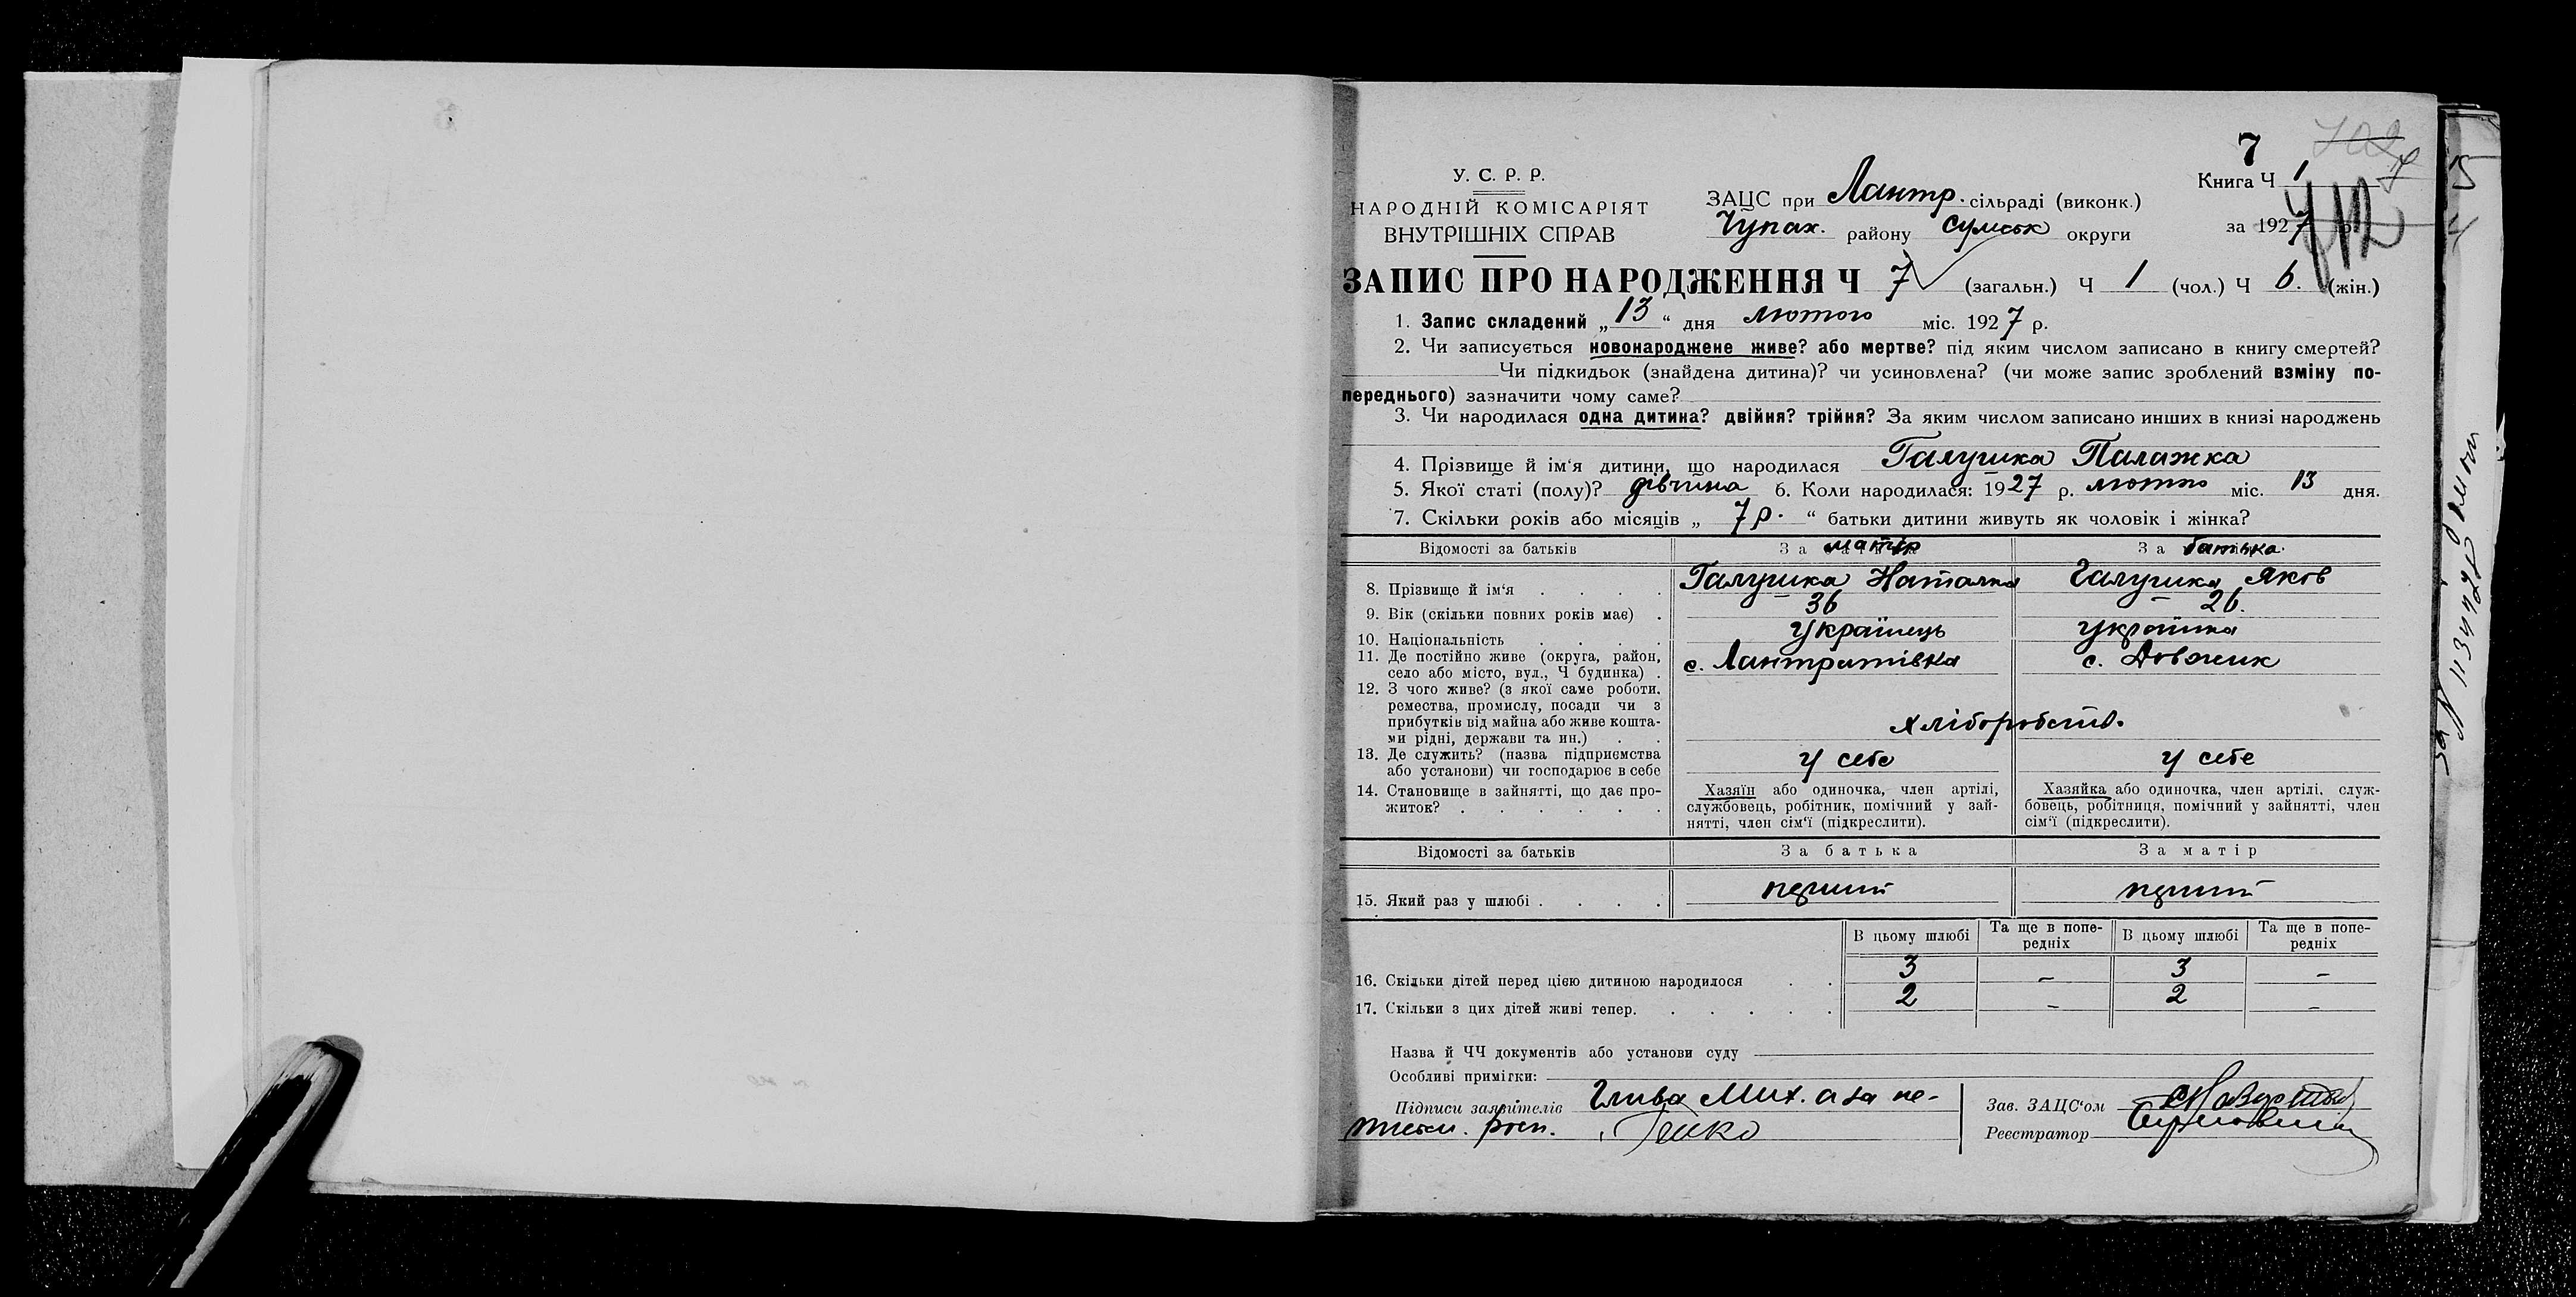 7
У. С. Р. Р.
НАРОДНІЙ КОМІСАРІЯТ
ВНУТРІШНІХ СПРАВ
ЗАЦС при Лантр. сільраді (виконк.)
Чупах. району Сумськ округи
Книга Ч 1
за 1927 р.
412
ЗАПИС ПРО НАРОДЖЕННЯ Ч 7 (загальн.) Ч 1 (чол.) Ч 6. (жін.)
1. Запис складений „13“ дня лютого міс. 1927 р.
2. Чи записується новонароджене живе? або мертве? під яким числом записано в книгу смертей?
Чи підкидьок (знайдена дитина)? чи усиновлена? (чи може запис зроблений взміну по-
переднього) зазначити чому саме?
3. Чи народилася одна дитина? двійня? трійня? За яким числом записано инших в книзі народжень
4. Прізвище й ім‘я дитини, що народилася Галушка Палажка
5. Якої статі (полу)? дівчина 6. Коли народилася: 1927 р. лютого міс. 13 дня.
7. Скільки років або місяців „ 7 р. “ батьки дитини живуть як чоловік і жінка?
Відомості за батьків За матір За батька
8. Прізвище й ім‘я Галушка Наталка Галушка Яков
9. Вік (скільки повних років має) 36 26.
10. Національність Українець Українка
11. Де постійно живе (округа, район,
село або місто, вул., Ч будинка) с. Лантратівка с. Довжик
12. З чого живе? (з якої саме роботи,
ремества, промислу, посади чи з
прибутків від майна або живе кошта-
ми рідні, держави та ин.) хліборобств.
13. Де служить? (назва підприємства
або установи) чи господарює в себе у себе у себе
14. Становище в зайнятті, що дає про-
житток?
Хазяїн або одиночка, член артілі,
службовець, робітник, помічний у зай-
нятті, член сім‘ї (підкреслити).
Хазяйка або одиночка, член артілі, служ-
бовець, робітниця, помічний у зайнятті, член
сім‘ї (підкреслити).
Відомості за батьків За батька За матір
15. Який раз у шлюбі перший перший
В цьому шлюбі Та ще в попе-
редніх В цьому шлюбі Та ще в попе-
редніх
16. Скільки дітей перед цією дитиною народилося 3 – 3 –
17. Скільки з цих дітей живі тепер. 2 – 2 –
Назва й ЧЧ документів або установи суду
Особливі примітки:
Підписи заявителів Глива Мих. а за не-
письм. росп.
Зав. ЗАЦС‘ом
Реєстратор